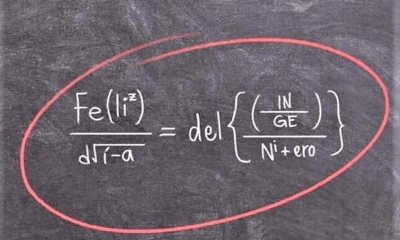 Fe(liᶻ)
d√i-a
= del { (
IN
GE
) }
Nⁱ+ero